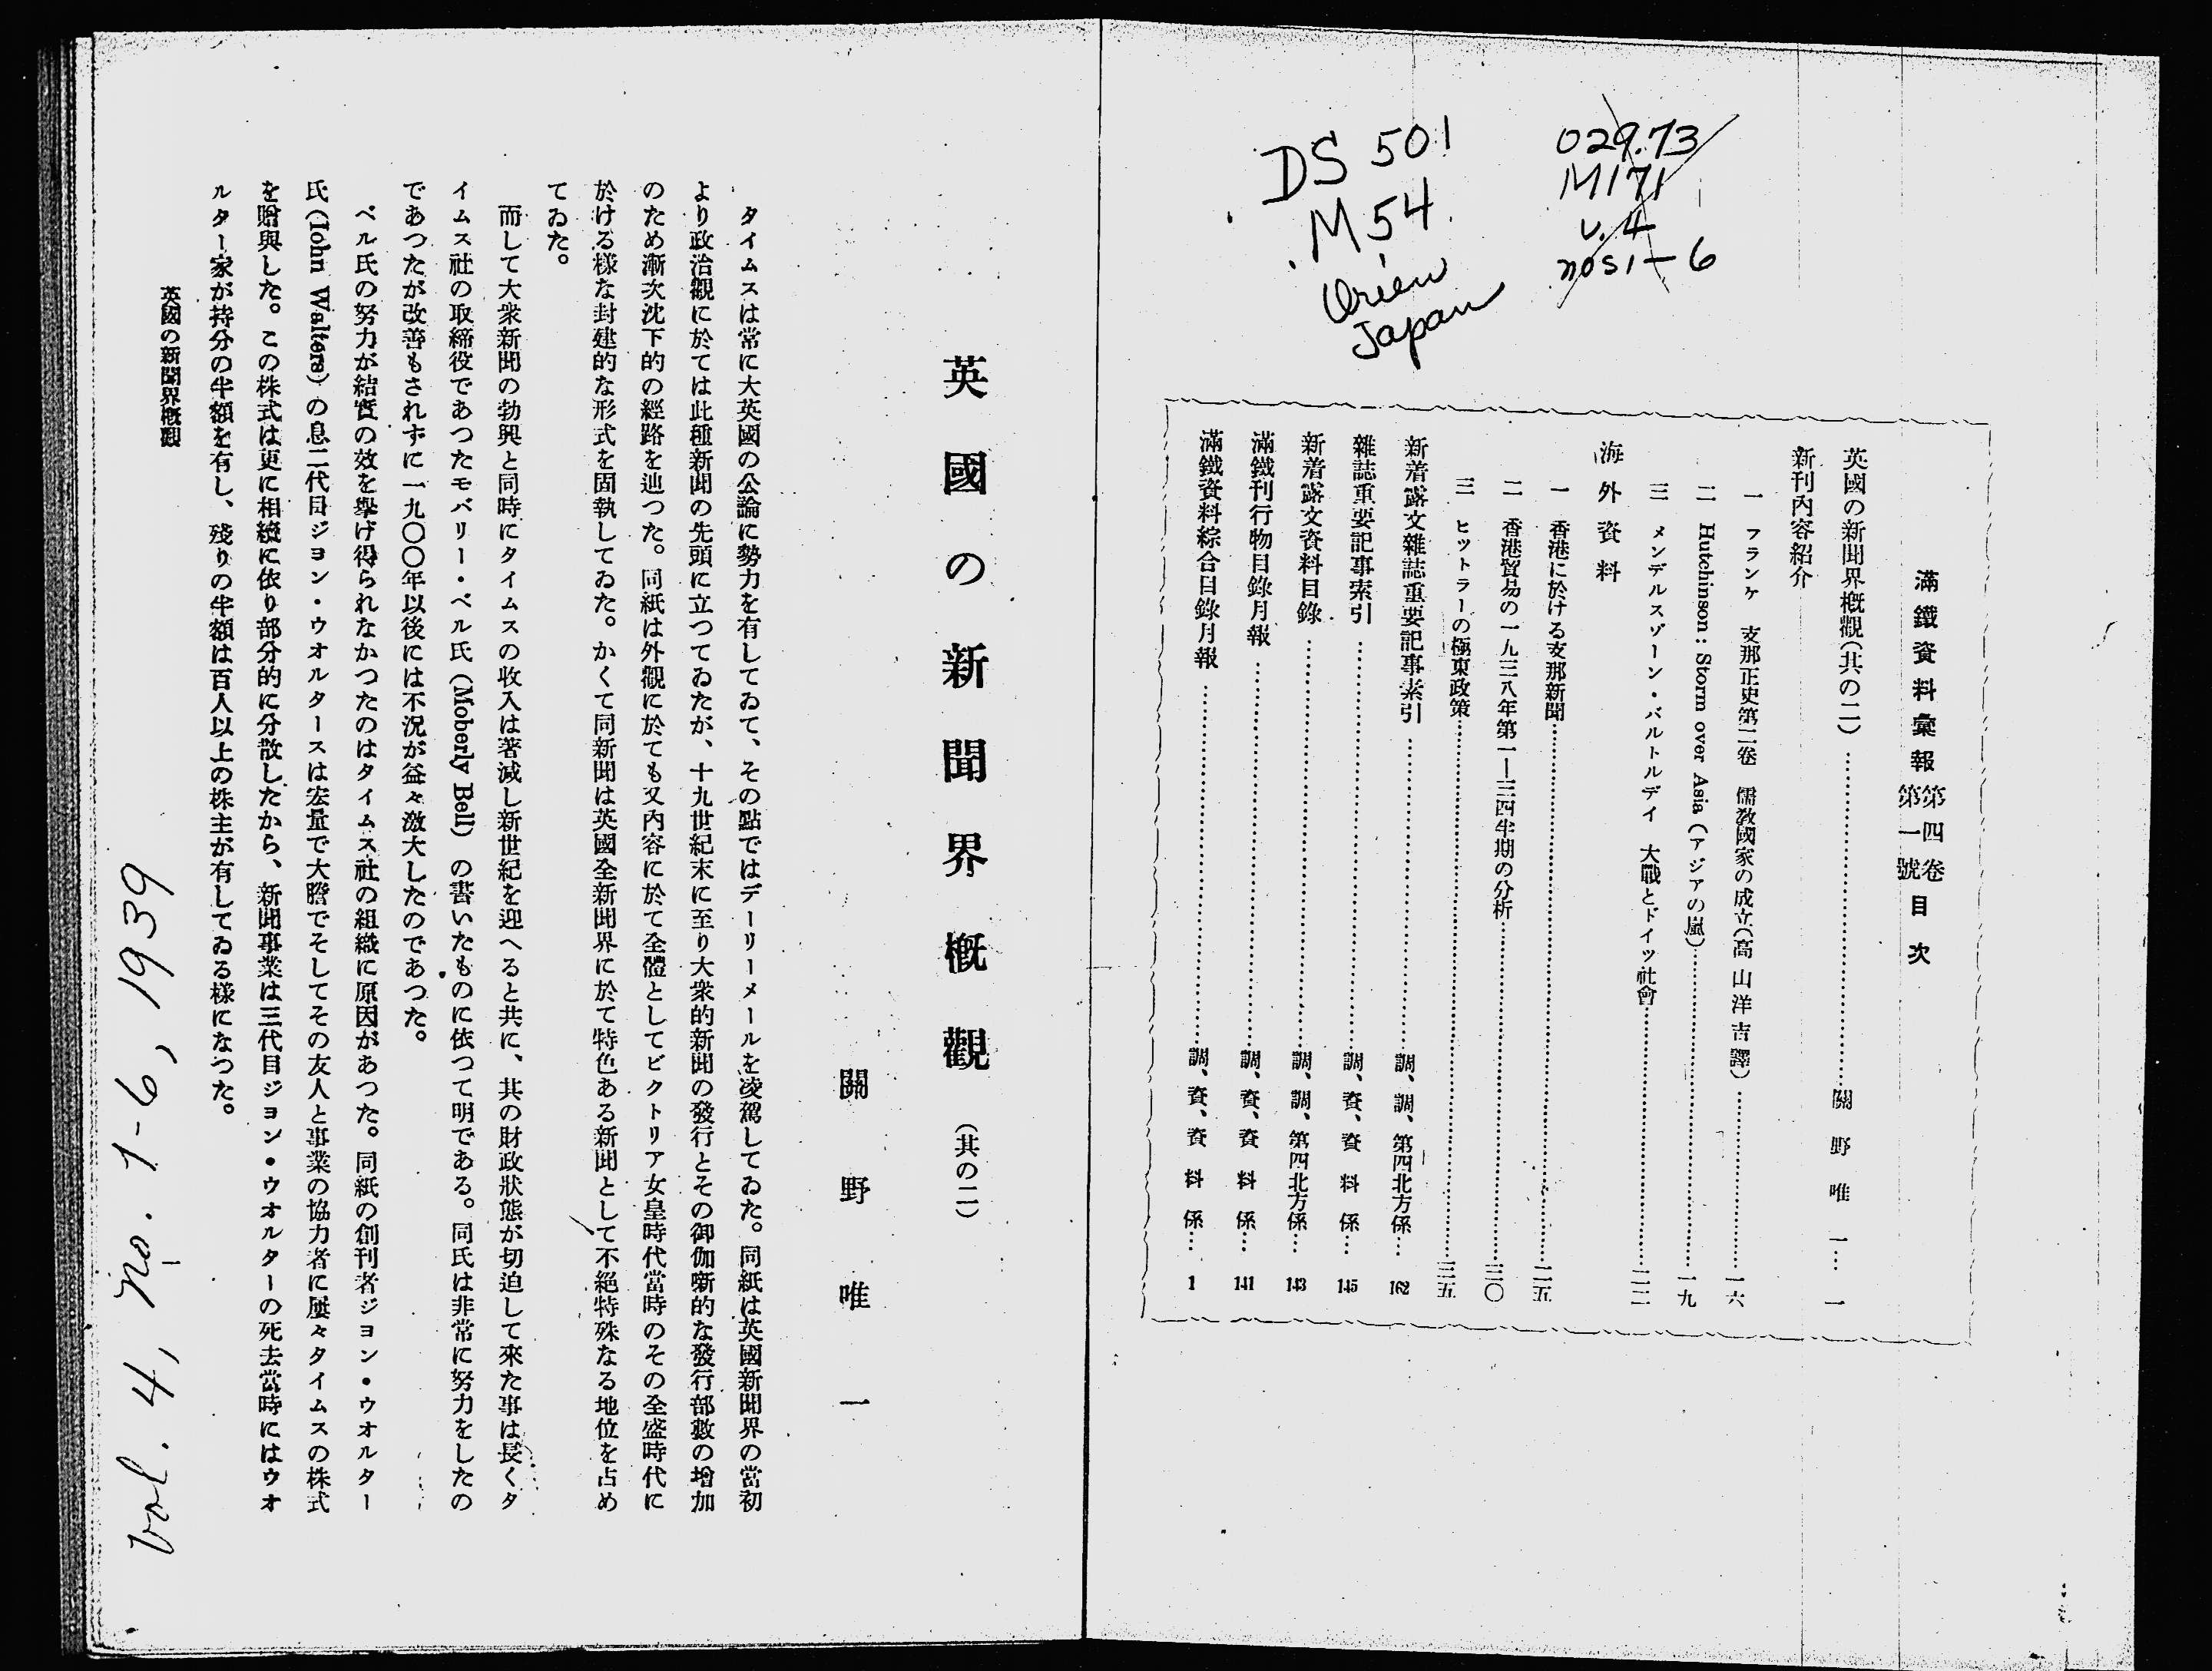 DS 501
M54
Orien
Japan
029.73
M171
v.4
nos1-6
滿鐵資料彙報 第四卷 第一號 目次
英國の新聞界槪觀(其の二)……關野唯一… 一
新刊內容紹介
一 フランケ 支那正史第二卷 儒敎國家の成立(高山洋吉譯)……一六
二 Hutchinson: Storm over Asia (アジアの嵐)……一九
三 メンデルスゾーン・バルトルデイ 大戰とドイツ社會……二二
海外資料
一 香港に於ける支那新聞……二五
二 香港貿易の一九三八年第一—三四半期の分析……三〇
三 ヒットラーの極東政策……三五
新着露文雜誌重要記事索引……調、調、第四北方係… 162
雜誌重要記事索引……調、資、資料係… 145
新着露文資料目錄……調、調、第四北方係… 143
滿鐵刊行物目錄月報……調、資、資料係… 141
滿鐵資料綜合目錄月報……調、資、資料係… 1
英國の新聞界槪觀 (其の二)
關野唯一
タイムスは常に大英國の公論に勢力を有してゐて、その點ではデーリーメールを凌駕してゐた。同紙は英國新聞界の當初
より政治觀に於ては此種新聞の先頭に立つてゐたが、十九世紀末に至り大衆的新聞の發行とその御伽噺的な發行部數の增加
のため漸次沈下的の經路を辿つた。同紙は外觀に於ても又內容に於て全體としてビクトリア女皇時代當時のその全盛時代に
於ける樣な封建的な形式を固執してゐた。かくて同新聞は英國全新聞界に於て特色ある新聞として不絕特殊なる地位を占め
てゐた。
而して大衆新聞の勃興と同時にタイムスの收入は著減し新世紀を迎へると共に、其の財政狀態が切迫して來た事は長くタ
イムス社の取締役であつたモバリー・ベル氏(Moberly Bell)の書いたものに依つて明である。同氏は非常に努力をしたの
であつたが改善もされずに一九〇〇年以後には不況が益々激大したのであつた。
ベル氏の努力が結實の效を擧げ得られなかつたのはタイムス社の組織に原因があつた。同紙の創刊者ジョン・ウオルター
氏(John Walters)の息二代目ジョン・ウオルタースは宏量で大膽でそしてその友人と事業の協力者に屢々タイムスの株式
を贈與した。この株式は更に相續に依り部分的に分散したから、新聞事業は三代目ジョン・ウオルターの死去當時にはウオ
ルター家が持分の半額を有し、殘りの半額は百人以上の株主が有してゐる樣になつた。
英國の新聞界槪觀
Vol. 4, no. 1-6, 1939